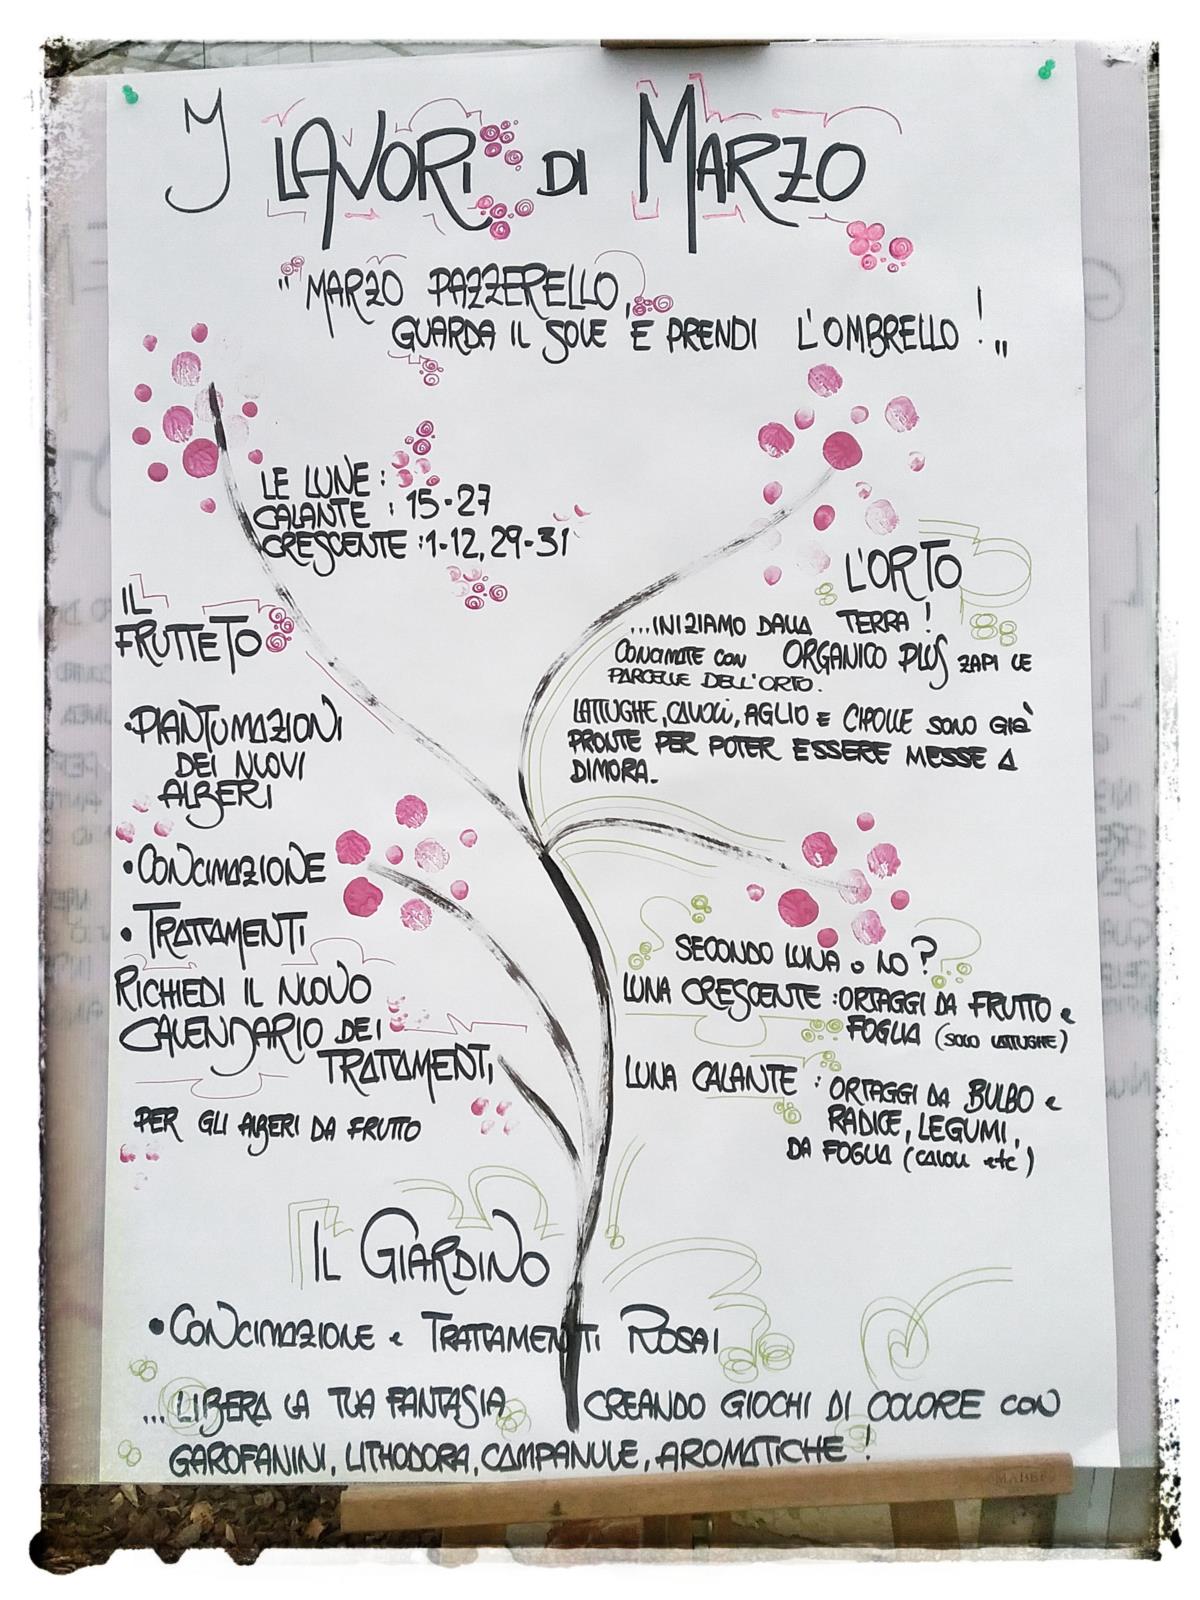 I LAVORI DI MARZO
"MARZO PAZZERELLO,
GUARDA IL SOLE E PRENDI L'OMBRELLO!"
LE LUNE:
CALANTE: 15-27
CRESCENTE: 1-12, 29-31
IL
FRUTTETO
• PIANTUMAZIONI
DEI NUOVI
ALBERI
• CONCIMAZIONE
• TRATTAMENTI
RICHIEDI IL NUOVO
CALENDARIO DEI
TRATTAMENTI
PER GLI ALBERI DA FRUTTO
L'ORTO
...INIZIAMO DALLA TERRA!
CONCIMATE CON ORGANICO PLUS ZAPI LE
PARCELLE DELL'ORTO.
LATTUGHE, CAVOLI, AGLIO E CIPOLLE SONO GIÀ
PRONTE PER POTER ESSERE MESSE A
DIMORA.
SECONDO LUNA O NO?
LUNA CRESCENTE: ORTAGGI DA FRUTTO e
FOGLIA (SOLO LATTUGHE)
LUNA CALANTE: ORTAGGI DA BULBO e
RADICE, LEGUMI,
DA FOGLIA (CAVOLI etc)
IL GIARDINO
• CONCIMAZIONE e TRATTAMENTI ROSAI
...LIBERA LA TUA FANTASIA CREANDO GIOCHI DI COLORE CON
GAROFANINI, LITHODORA, CAMPANULE, AROMATICHE!